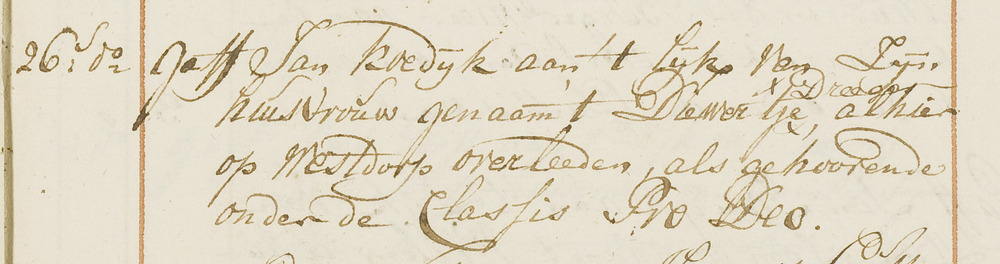 26s do Gaff Jan Kvedijk aan 't Lijk van Zijn
huisvrouw genaamt Diewertje Dreeger, alhier
op Westdorp overleeden, als gehoorende
onder de Classis Pro Deo.